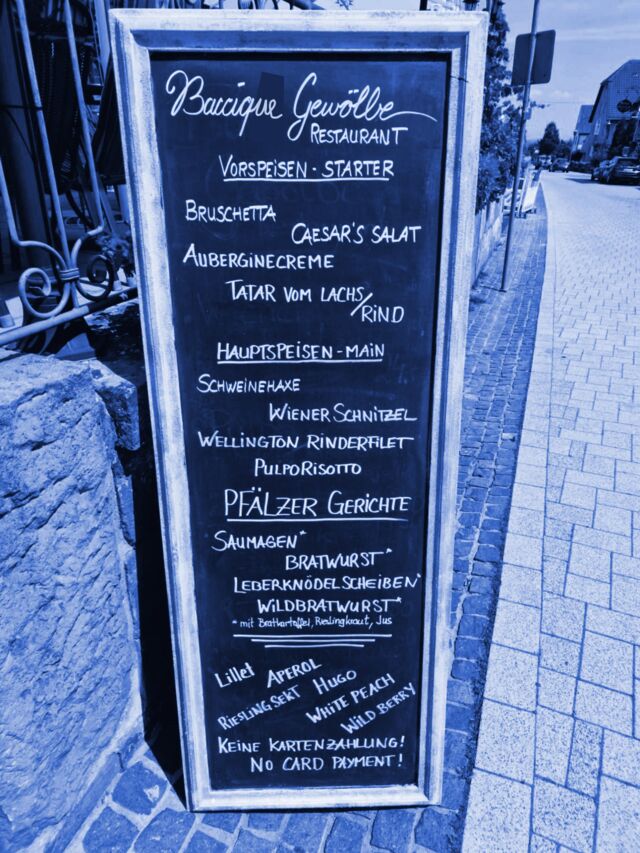 Baccique Gewölbe
RESTAURANT
VORSPEISEN - STARTER
BRUSCHETTA
CAESAR'S SALAT
AUBERGINECREME
TATAR VOM LACHS/
RIND
HAUPTSPEISEN - MAIN
SCHWEINEHAXE
WIENER SCHNITZEL
WELLINGTON RINDERFILET
PULPO RISOTTO
PFÄLZER GERICHTE
SAUMAGEN*
BRATWURST*
LEBERKNÖDELSCHEIBEN*
WILDBRATWURST*
* mit Bratkartoffel, Rieslingkraut, Jus
Lillet APEROL
RIESLINGSEKT HUGO
WHITE PEACH
WILD BERRY
KEINE KARTENZAHLUNG!
NO CARD PAYMENT!